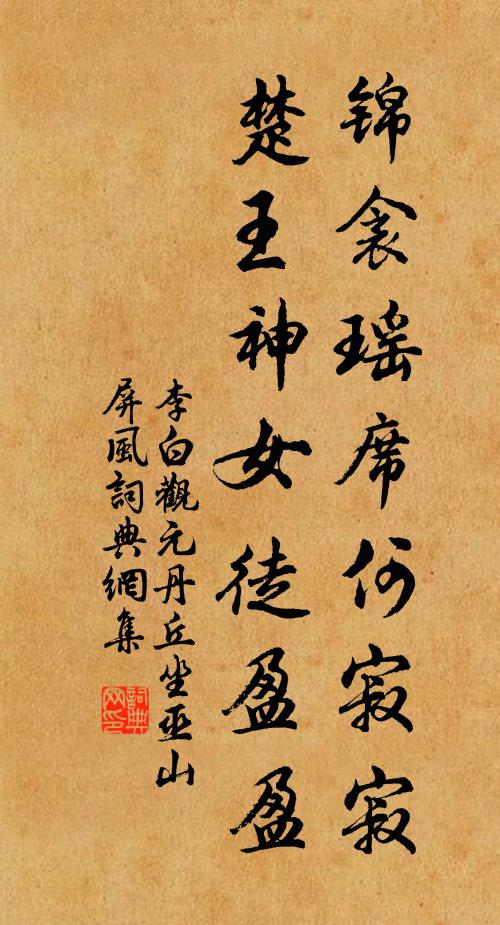 锦衾瑶席何寂寂
楚王神女徒盈盈
李白觀元丹丘坐巫山
屏風詞典網集
詞典
网印